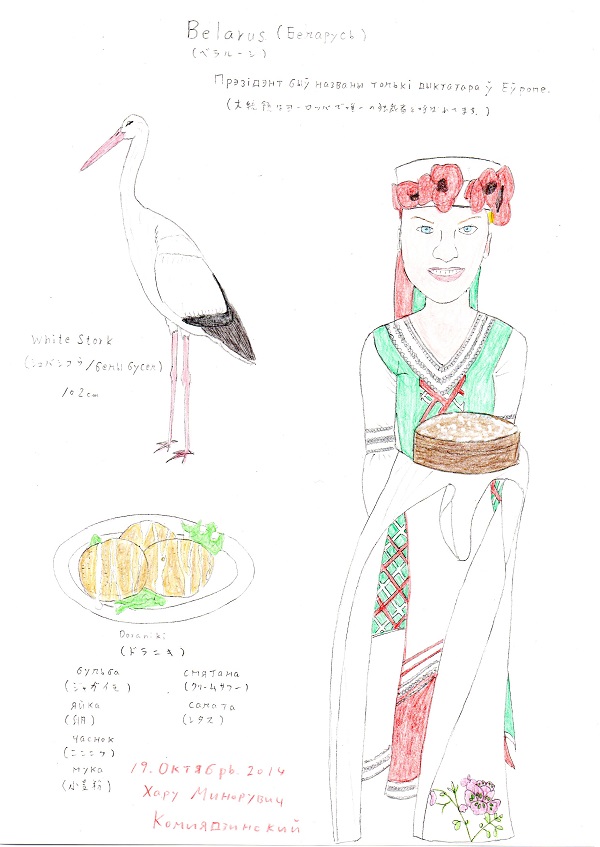 Belarus (Беларусь)
(ベラルーシ)
Прэзідэнт быў названы толькі дыктатара ў Еўропе.
(大統領はヨーロッパで唯一の独裁者と呼ばれてます.)
White Stork
(シュバシコウ/белы бусел)
102cm
Doraniki
(ドラニキ)
бульба
(ジャガイモ)
яйка
(卵)
часнок
(ニンニク)
мука
(小麦粉)
смятана
(クリームサワー)
салата
(レタス)
19. Октябрь. 2014
Хару Минорувич
Комиядзинский